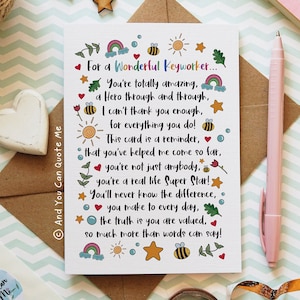 For a Wonderful Keyworker...
You're totally amazing,
a Hero through and through,
I can't thank you enough,
for everything you do!
This card is a reminder,
that you've helped me come so far,
you're not just anybody,
you're a real life Super Star!
You'll never know the difference,
you make to every day,
the truth is you are valued,
so much more than words can say!
© And You Can Quote Me